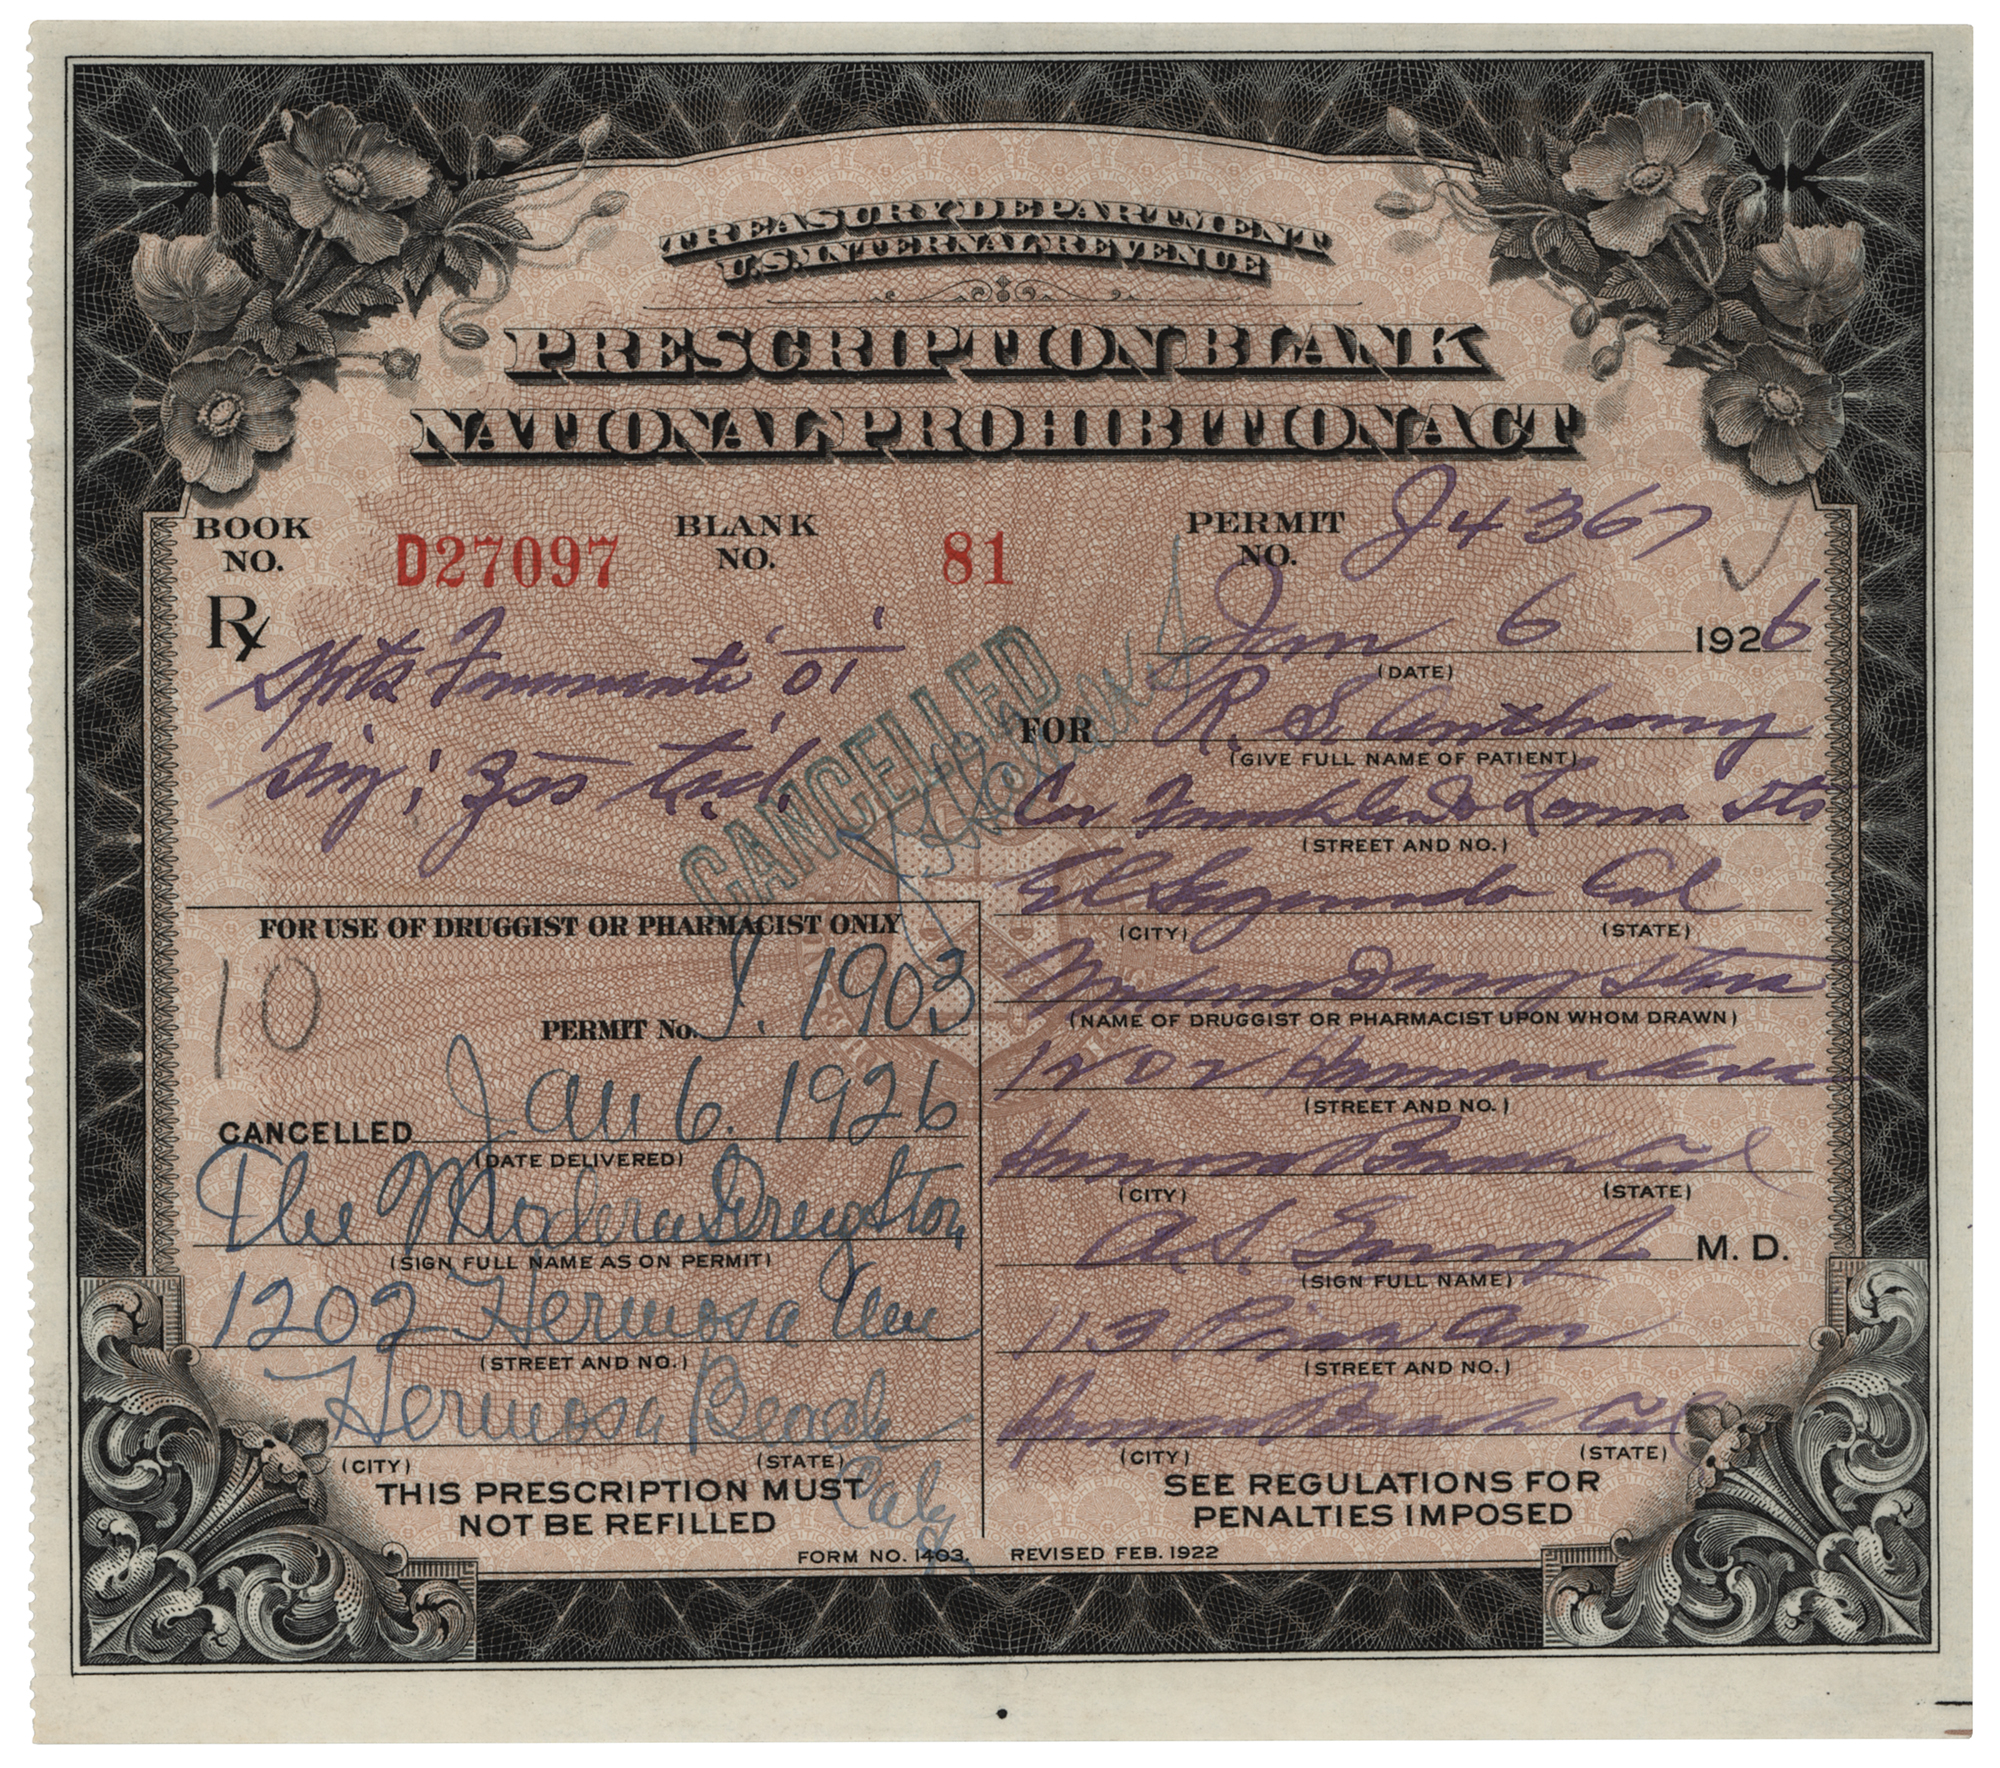 TREASURY DEPARTMENT
U.S. INTERNAL REVENUE
PRESCRIPTION BLANK
NATIONAL PROHIBITION ACT
BOOK NO. D27097 BLANK NO. 81 PERMIT NO. J4367
Rx
Jan 6 1926
(DATE)
Spts
FOR R. S. Anthony
(GIVE FULL NAME OF PATIENT)
CANCELLED
Cor Franklin & Loma Sts
(STREET AND NO.)
El Segundo Cal
(CITY) (STATE)
Modern Drug Store
(NAME OF DRUGGIST OR PHARMACIST UPON WHOM DRAWN)
1202 Hermosa Ave
(STREET AND NO.)
Hermosa Beach Cal
(CITY) (STATE)
A. S. M. D.
(SIGN FULL NAME)
113 Ave
(STREET AND NO.)
Hermosa Beach Cal
(CITY) (STATE)
SEE REGULATIONS FOR
PENALTIES IMPOSED
FOR USE OF DRUGGIST OR PHARMACIST ONLY
10
PERMIT No. J. 1903
CANCELLED Jan 6. 1926
(DATE DELIVERED)
The Modern Drug Store
(SIGN FULL NAME AS ON PERMIT)
1202 Hermosa Ave
(STREET AND NO.)
Hermosa Beach
(CITY) (STATE)
Calif
THIS PRESCRIPTION MUST
NOT BE REFILLED
FORM NO. 1403. REVISED FEB. 1922